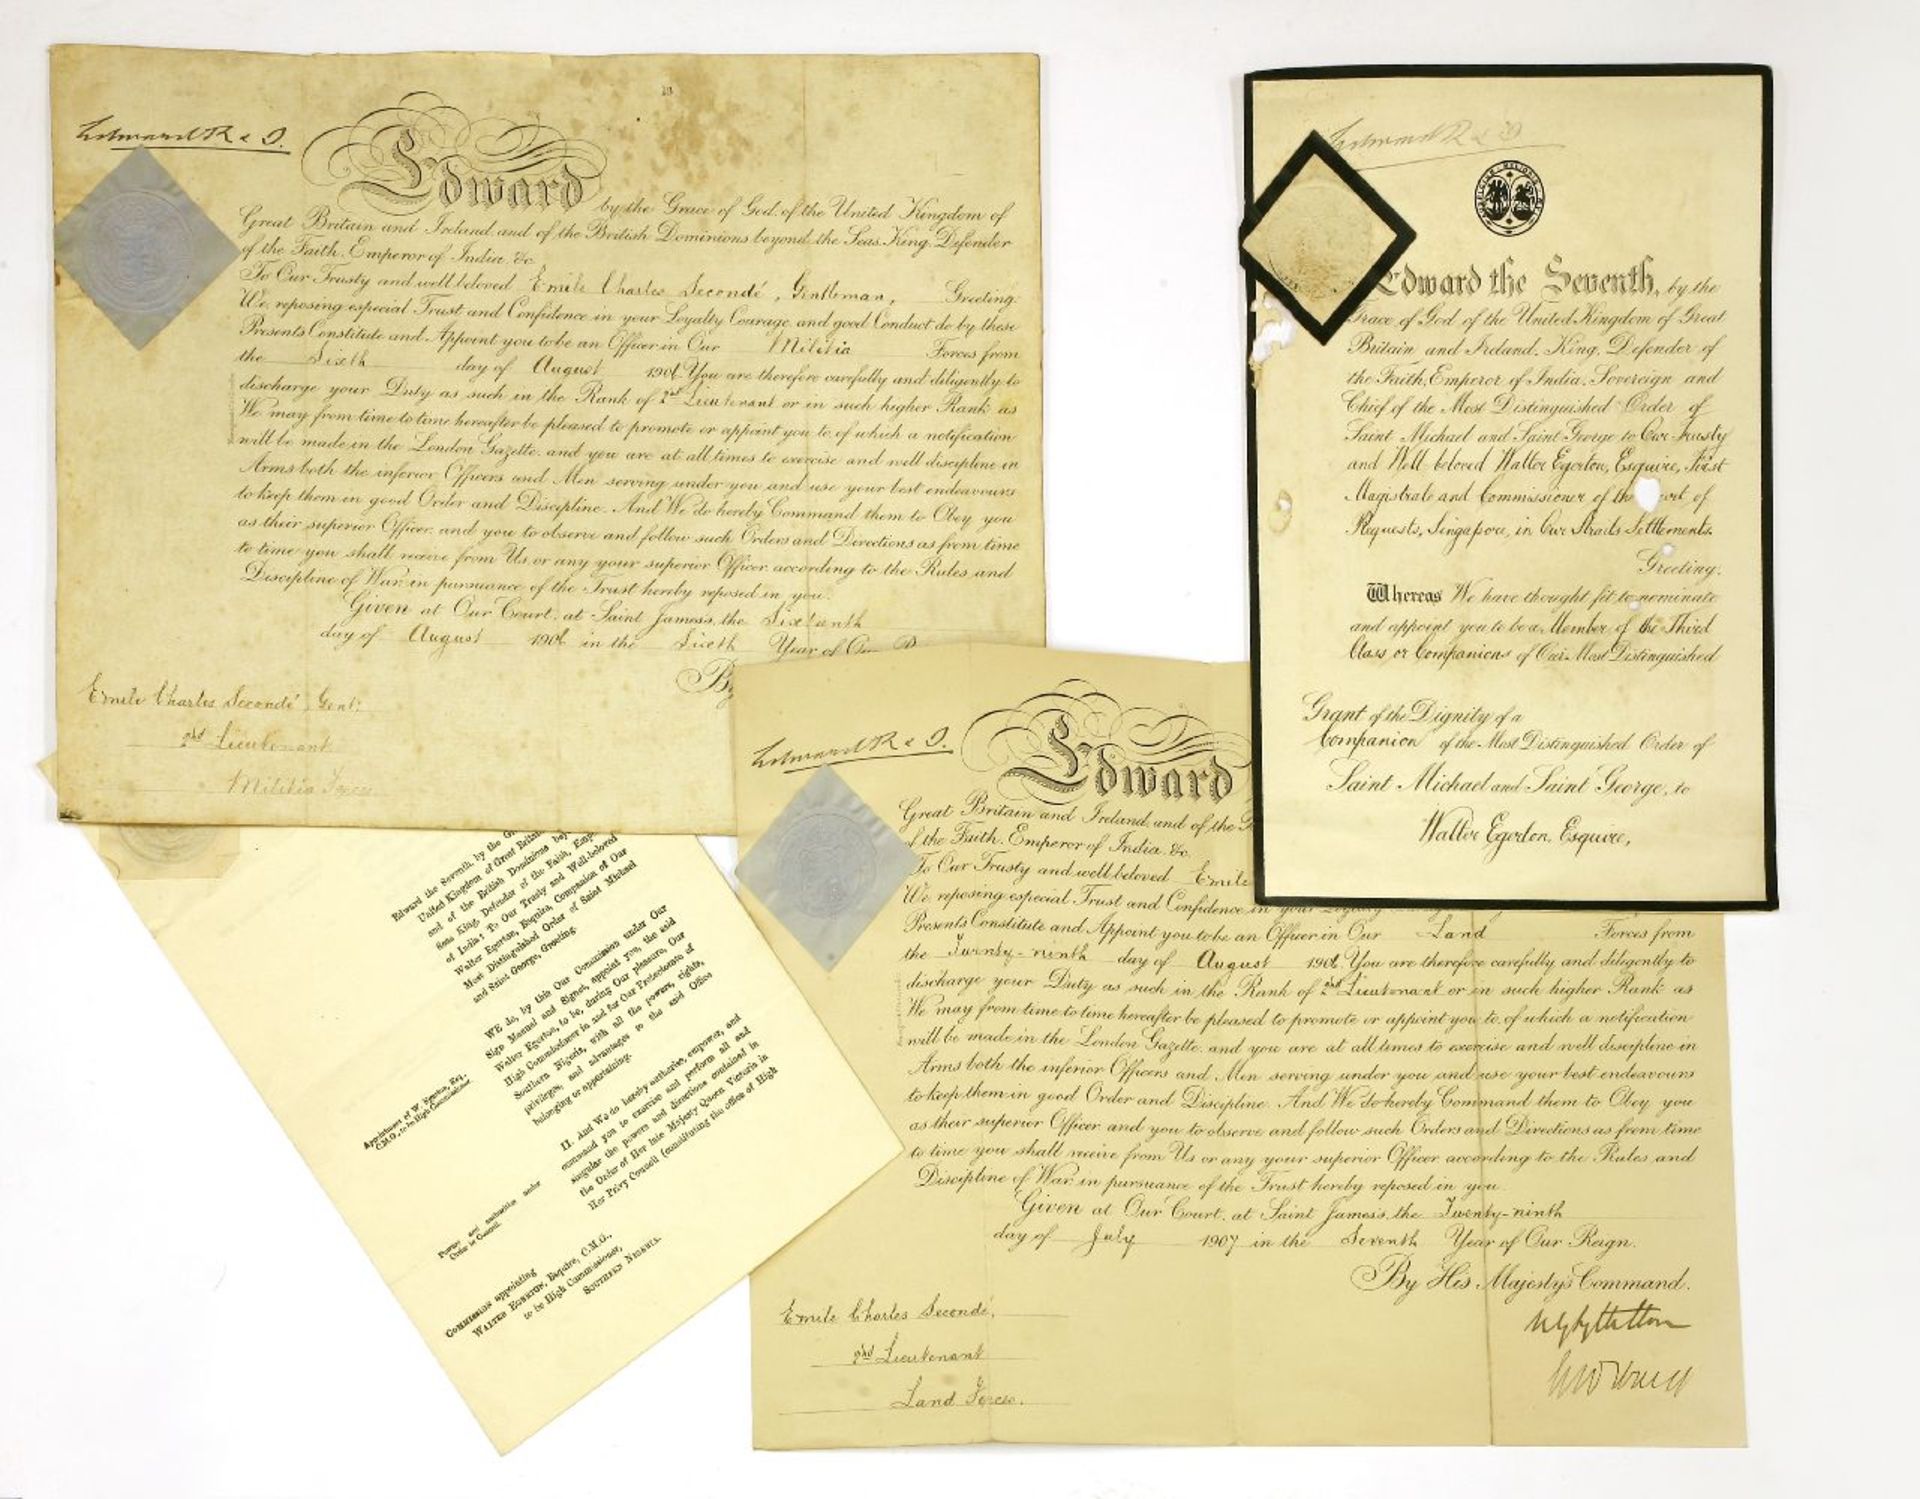 Edward R & I.
Edward by the Grace of God, of the United Kingdom of
Great Britain and Ireland, and of the British Dominions beyond the Seas, King, Defender
of the Faith, Emperor of India, &c.
To Our Trusty and wellbeloved Emile Charles Secondé, Gentleman, Greeting.
We, reposing especial Trust and Confidence in your Loyalty, Courage, and good Conduct, do by these
Presents Constitute and Appoint you to be an Officer in Our Militia Forces from
the Sixth day of August 1906. You are therefore carefully and diligently to
discharge your Duty as such in the Rank of 2nd Lieutenant or in such higher Rank as
We may from time to time hereafter be pleased to promote or appoint you to, of which a notification
will be made in the London Gazette, and you are at all times to exercise and well discipline in
Arms both the inferior Officers and Men serving under you and use your best endeavours
to keep them in good Order and Discipline. And We do hereby Command them to Obey you
as their superior Officer, and you to observe and follow such Orders and Directions as from time
to time you shall receive from Us, or any your superior Officer, according to the Rules and
Discipline of War, in pursuance of the Trust hereby reposed in you.
Given at Our Court, at Saint James's, the Sixteenth
day of August 1906 in the Sixth Year of Our R
By
Emile Charles Secondé, Gent:
2nd Lieutenant
Militia Forces
Edward R & I.
Edward the Seventh, by the
Grace of God of the United Kingdom of Great
Britain and Ireland, King, Defender of
the Faith, Emperor of India, Sovereign and
Chief of the Most Distinguished Order of
Saint Michael and Saint George to Our Trusty
and Well beloved Walter Egerton, Esquire, First
Magistrate and Commissioner of the of
Requests, Singapore, in Our Straits Settlements.
Greeting.
Whereas We have thought fit to nominate
and appoint you to be a Member of the Third
Class or Companions of Our Most Distinguished
Grant of the Dignity of a
Companion of the Most Distinguished Order of
Saint Michael and Saint George, to
Walter Egerton, Esquire,
Edward the Seventh, by the
United Kingdom of Great Britain
and of the British Dominions
Seas King, Defender of the Faith,
of India: To Our Trusty and Well-beloved
Walter Egerton, Esquire, Companion of Our
Most Distinguished Order of Saint Michael
and Saint George, Greeting.
Appointment of W. Egerton, Esq.,
C.M.G., to be High Commissioner.
WE do, by this Our Commission under Our
Sign Manual and Signet, appoint you, the said
Walter Egerton, to be, during Our pleasure, Our
High Commissioner in and for Our Protectorate of
Southern Nigeria, with all the powers, rights,
privileges, and advantages to the said Office
belonging or appertaining.
Powers and authorities under
Order in Council.
II. And We do hereby authorise, empower, and
command you to exercise and perform all and
singular the powers and directions contained in
the Order of Her late Majesty Queen Victoria in
Her Privy Council (constituting the office of High
Commission appointing
WALTER EGERTON, Esquire, C.M.G.,
to be High Commissioner,
SOUTHERN NIGERIA.
Edward R & I.
Edward
Great Britain and Ireland, and of the
of the Faith, Emperor of India, &c.
To Our Trusty and wellbeloved Emile
We, reposing especial Trust and Confidence in your
Presents Constitute and Appoint you to be an Officer in Our Land Forces from
the Twenty-ninth day of August 1906. You are therefore carefully and diligently to
discharge your Duty as such in the Rank of 2nd Lieutenant or in such higher Rank as
We may from time to time hereafter be pleased to promote or appoint you to, of which a notification
will be made in the London Gazette, and you are at all times to exercise and well discipline in
Arms both the inferior Officers and Men serving under you and use your best endeavours
to keep them in good Order and Discipline. And We do hereby Command them to Obey you
as their superior Officer and you to observe and follow such Orders and Directions as from time
to time you shall receive from Us, or any your superior Officer, according to the Rules and
Discipline of War, in pursuance of the Trust hereby reposed in you.
Given at Our Court, at Saint James's, the Twenty-ninth
day of July 1907 in the Seventh Year of Our Reign.
By His Majesty's Command.
Emile Charles Secondé,
2nd Lieutenant
Land Forces.